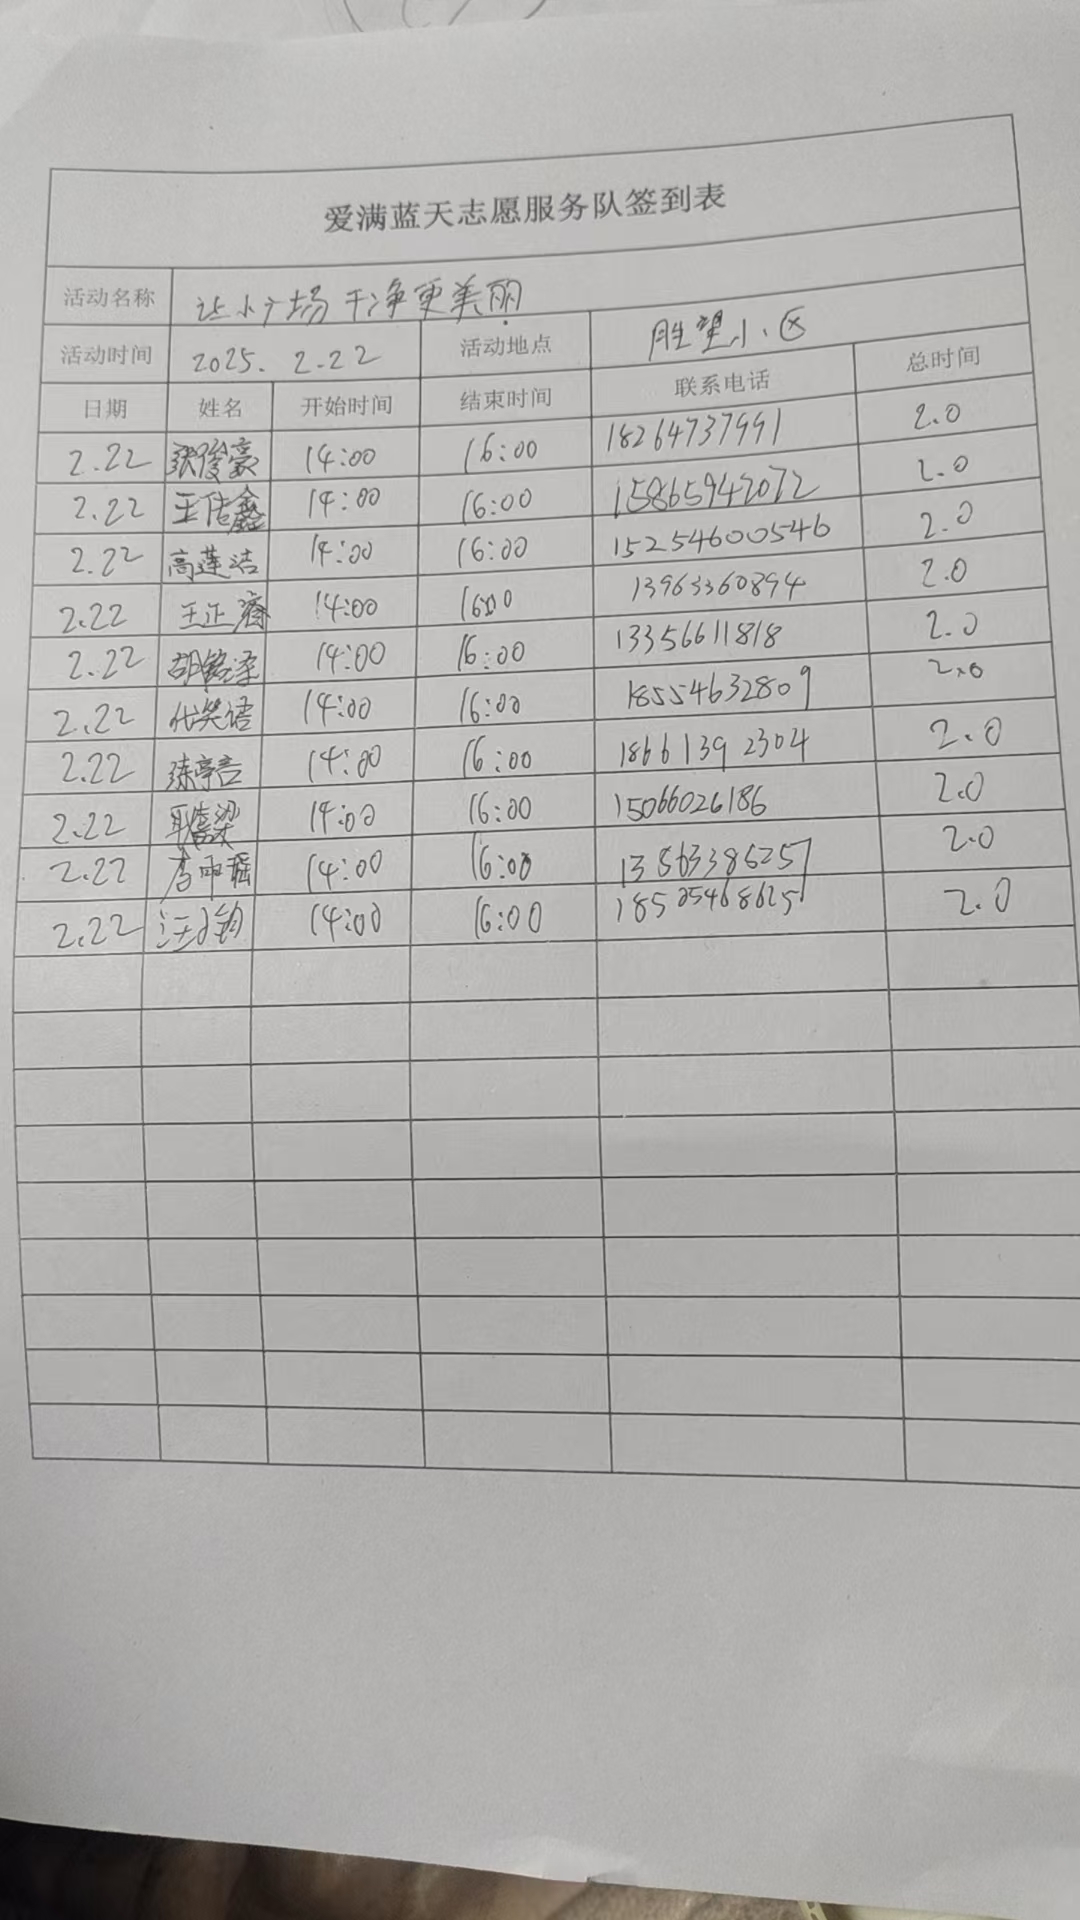 爱满蓝天志愿服务队签到表
活动名称 让小广场干净更美丽
活动时间 2025. 2.22 活动地点 胜望小区
日期 姓名 开始时间 结束时间 联系电话 总时间
2.22 张俊豪 14:00 16:00 18264737991 2.0
2.22 王传鑫 14:00 16:00 15865942072 2.0
2.22 高莲洁 14:00 16:00 15254600546 2.0
2.22 王正 14:00 16:00 13963360894 2.0
2.22 胡铭泽 14:00 16:00 13356611818 2.0
2.22 代笑语 14:00 16:00 18554632809 2.0
2.22 14:00 16:00 18661392304 2.0
2.22 14:00 16:00 15066026186 2.0
2.22 李雨瑶 14:00 16:00 13863386257 2.0
2.22 14:00 16:00 2.0